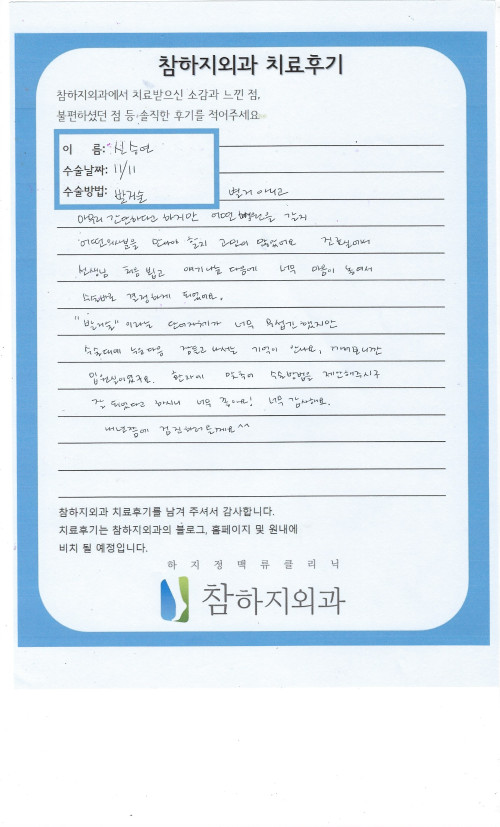 참하지외과 치료후기
참하지외과에서 치료받으신 소감과 느낀 점,
불편하셨던 점 등 솔직한 후기를 적어주세요
이 름: 신승연
수술날짜: 11/11
수술방법: 발거술
별거 아니고
아무리 간단하다고 하지만 어떤 병원을 갈지
어떤의사분을 만나야 할지 고민이 많았어요
선생님 뵙고 얘기나눈 다음에 너무 마음이 놓여서
결정하게 되었어요.
"발거술" 이라는 단어자체가 너무 했지만
수술대에 누운다음 잠들고 나서는 기억이 안나요,
입원실이었구요. 환자에 맞추어 수술방법을 제안해주시구
잘 되었다고 하시니 너무 좋네요! 너무 감사해요.
내년쯤에 검진하러올게요^^
참하지외과 치료후기를 남겨 주셔서 감사합니다.
치료후기는 참하지외과의 블로그, 홈페이지 및 원내에
비치 될 예정입니다.
하지정맥류클리닉
참하지외과